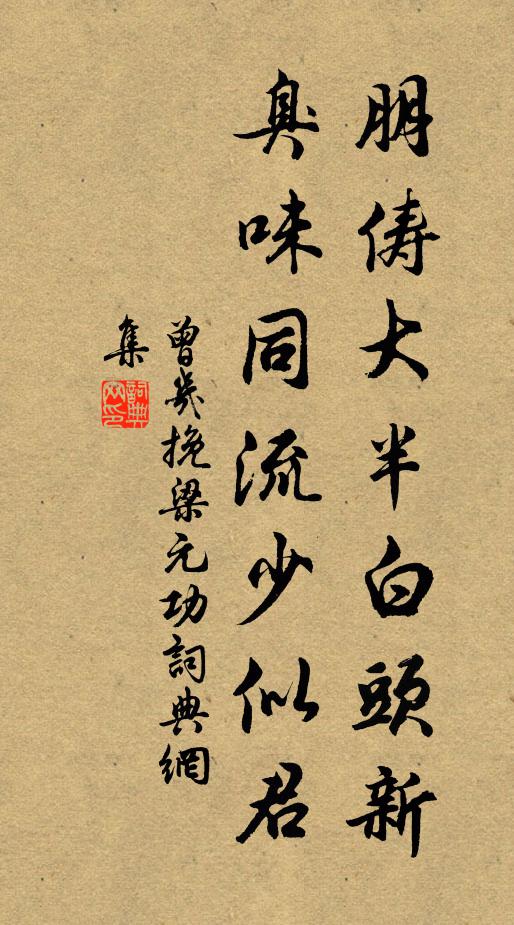 朋儔大半白頭新
臭味同流少似君
曾幾挽梁元功詞典網
集
詞典網印